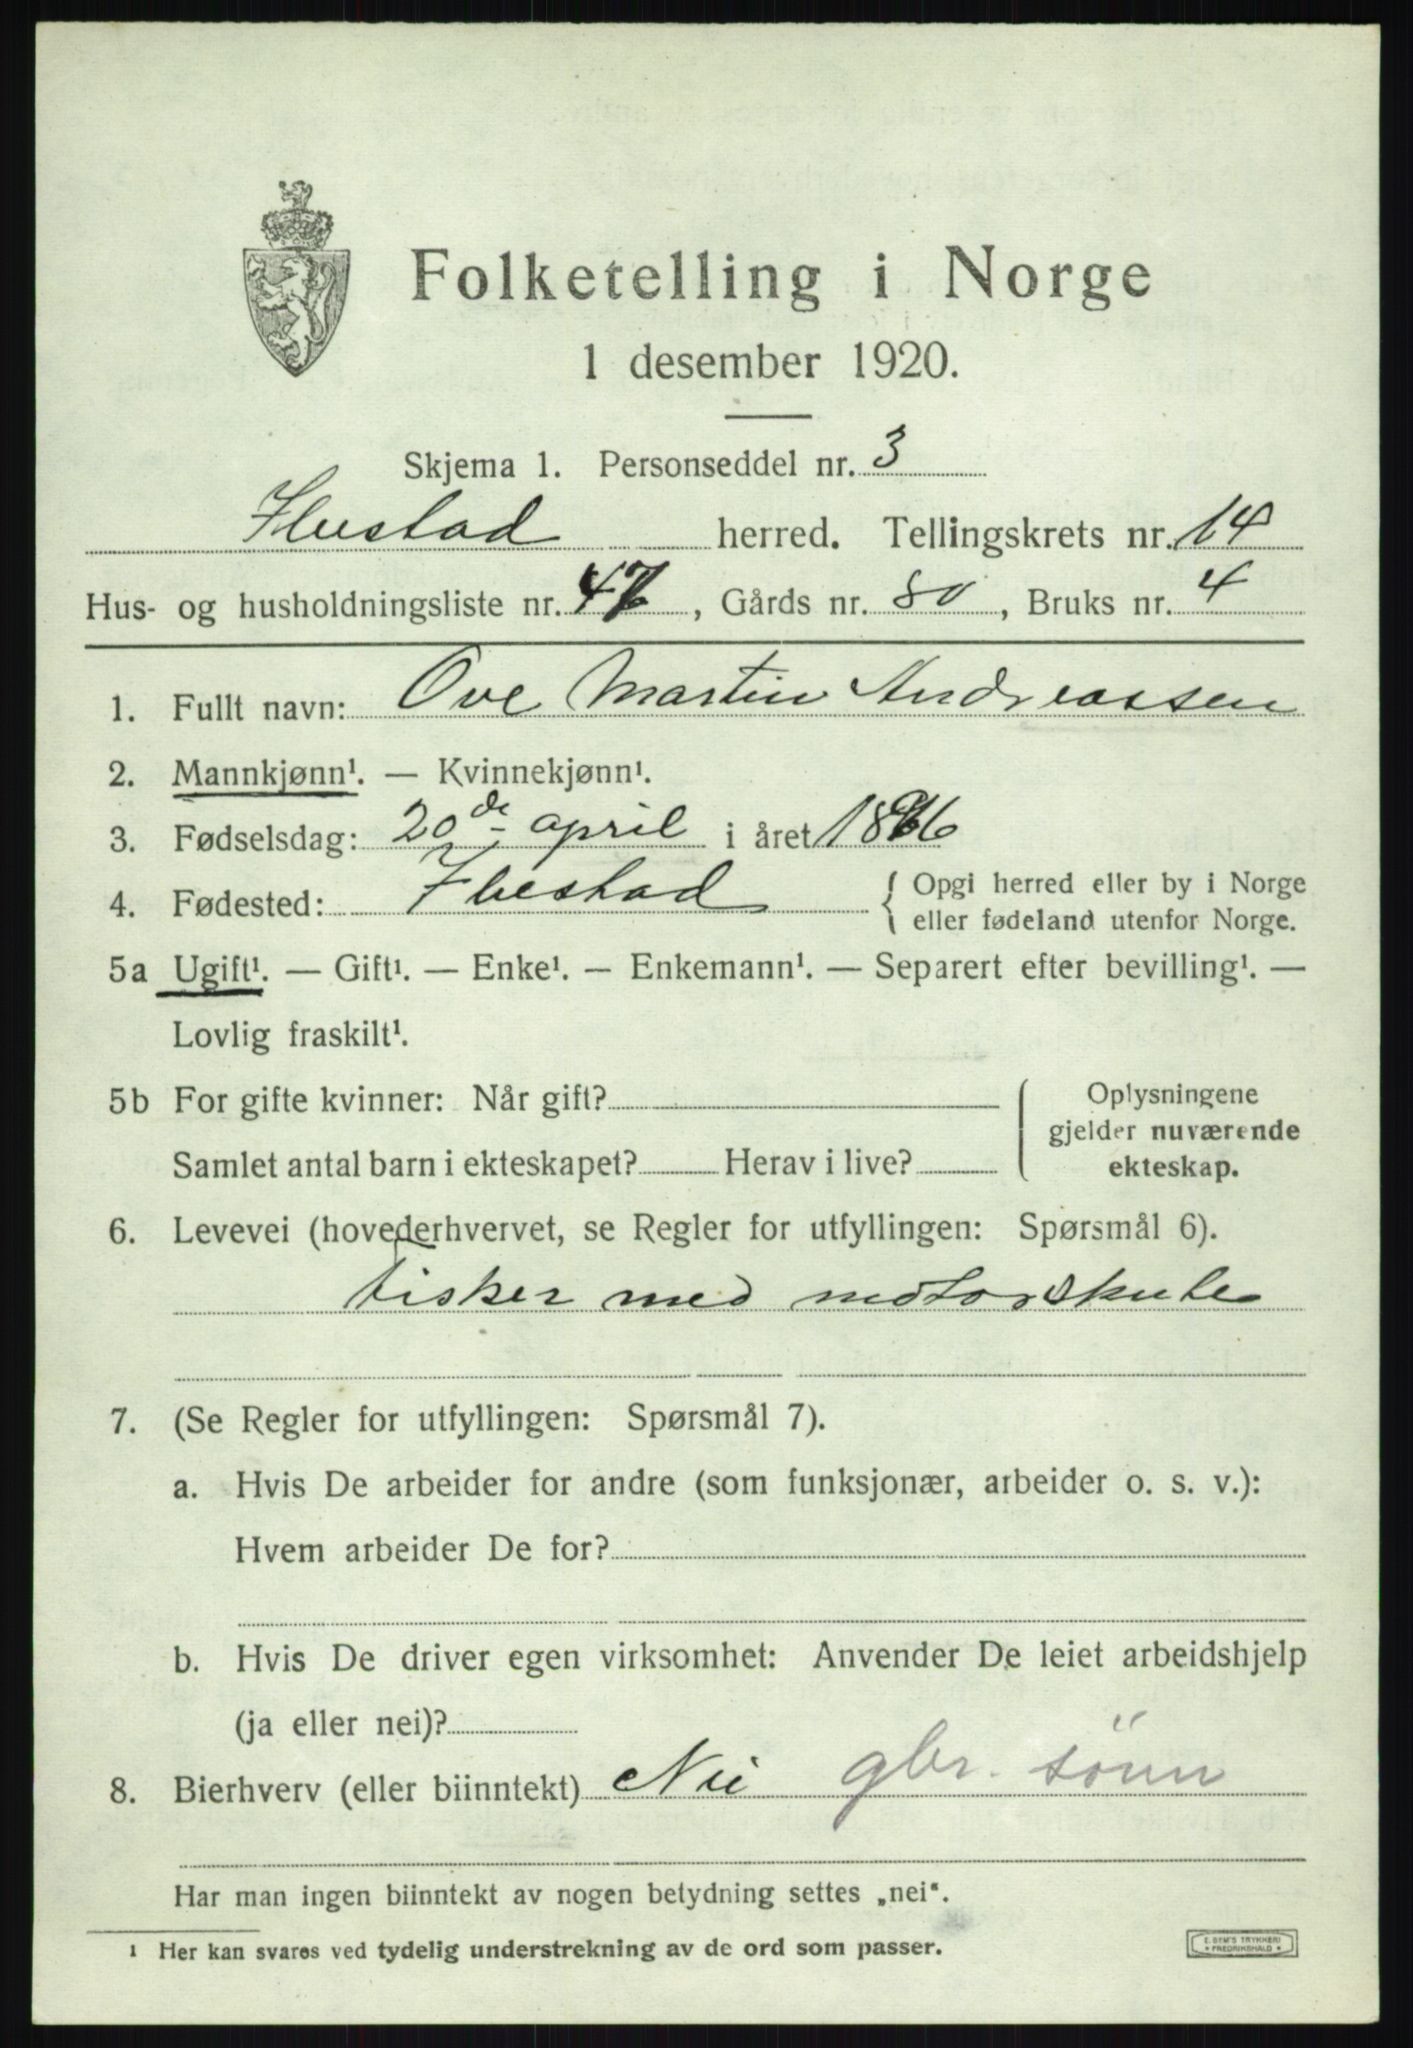 Folketelling i Norge
1 desember 1920.
Skjema 1. Personseddel nr. 3
Ibestad herred. Tellingskrets nr. 14
Hus- og husholdningsliste nr. 47, Gårds nr. 80, Bruks nr. 4
1. Fullt navn: Ove Martin Andreassen
2. Mannkjønn¹. — Kvinnekjønn¹.
3. Fødselsdag: 20de april i året 1896
4. Fødested: Ibestad { Opgi herred eller by i Norge
eller fødeland utenfor Norge.
5a Ugift¹. — Gift¹. — Enke¹. — Enkemann¹. — Separert efter bevilling¹. —
Lovlig fraskilt¹.
5b For gifte kvinner: Når gift? Oplysningene
gjelder nuværende
Samlet antal barn i ekteskapet? Herav i live? ekteskap.
6. Levevei (hovederhvervet, se Regler for utfyllingen: Spørsmål 6).
fisker med motorskute
7. (Se Regler for utfyllingen: Spørsmål 7).
a. Hvis De arbeider for andre (som funksjonær, arbeider o. s. v.):
Hvem arbeider De for?
b. Hvis De driver egen virksomhet: Anvender De leiet arbeidshjelp
(ja eller nei)?
8. Bierhverv (eller biinntekt) Nei gbr. sönn
Har man ingen biinntekt av nogen betydning settes „nei“.
¹ Her kan svares ved tydelig understrekning av de ord som passer.
E. SEM'S TRYKKERI
• FREDRIKSHALD •